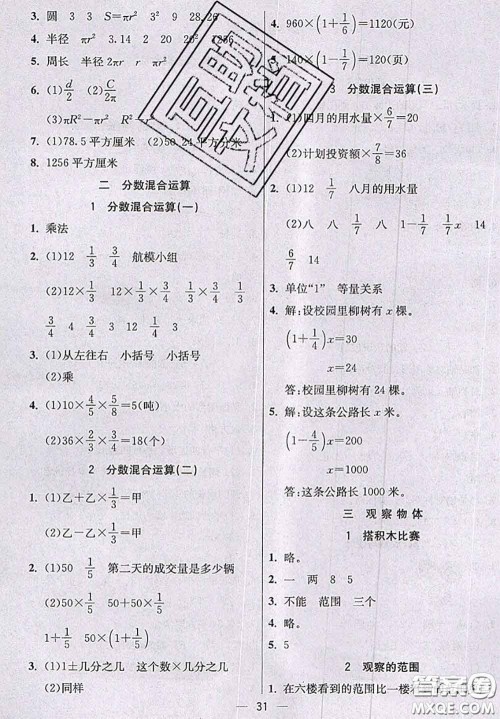 3. 圆 3 S=πr² 3² 9 28.26
4. 半径 πr² 3.14 2 20 20² 1256
5. 周长 πr r πr²
6. (1)d/2 (2)C/2π
(3)πR²-πr²
7. (1)78.5平方厘米 (2)50.24平方分米
8. 1256平方厘米
二 分数混合运算
1 分数混合运算(一)
1. 乘法
2. (1)12 1/3 3/4 航模小组
(2)12×1/3 12×1/3×3/4 1/3×3/4
3/4 4 3/4 3 1/3 3/4 1/4
3. (1)从左往右 小括号 小括号
(2)乘
4. (1)10×4/5×5/8=5(吨)
(2)36×2/3×3/4=18(个)
2 分数混合运算(二)
1. (1)乙+乙×1/5=甲
(2)乙-乙×1/5=甲
2. (1)50 1/5 第二天的成交量是多少辆
(2)50×1/5 50+50×1/5
1+1/5 50×(1+1/5)
3. (1)1±几分之几 这个数×几分之几
(2)同样
4. 960×(1+1/6)=1120(元)
140×(1-1/7)=120(页)
3 分数混合运算(三)
1. (1)四月的用水量×6/7=20
(2)计划投资额×7/8=36
2. (1)12 八月的用水量
(2)八 八 1/7 1-1/7 1/7x 14
6/7 14
3. 单位“1” 等量关系
4. 解:设校园里柳树有x棵。
(1+1/4)x=30
x=24
答:校园里柳树有24棵。
5. 解:设这条公路长x米。
(1-4/5)x=200
x=1000
答:这条公路长1000米。
三 观察物体
1 搭积木比赛
1. 略。
2. 一 两 8 5
3. 不能 范围 三个
4. 略。
5. 5
2 观察的范围
1. 在六楼看到的范围比一楼
31
MXQE.COM